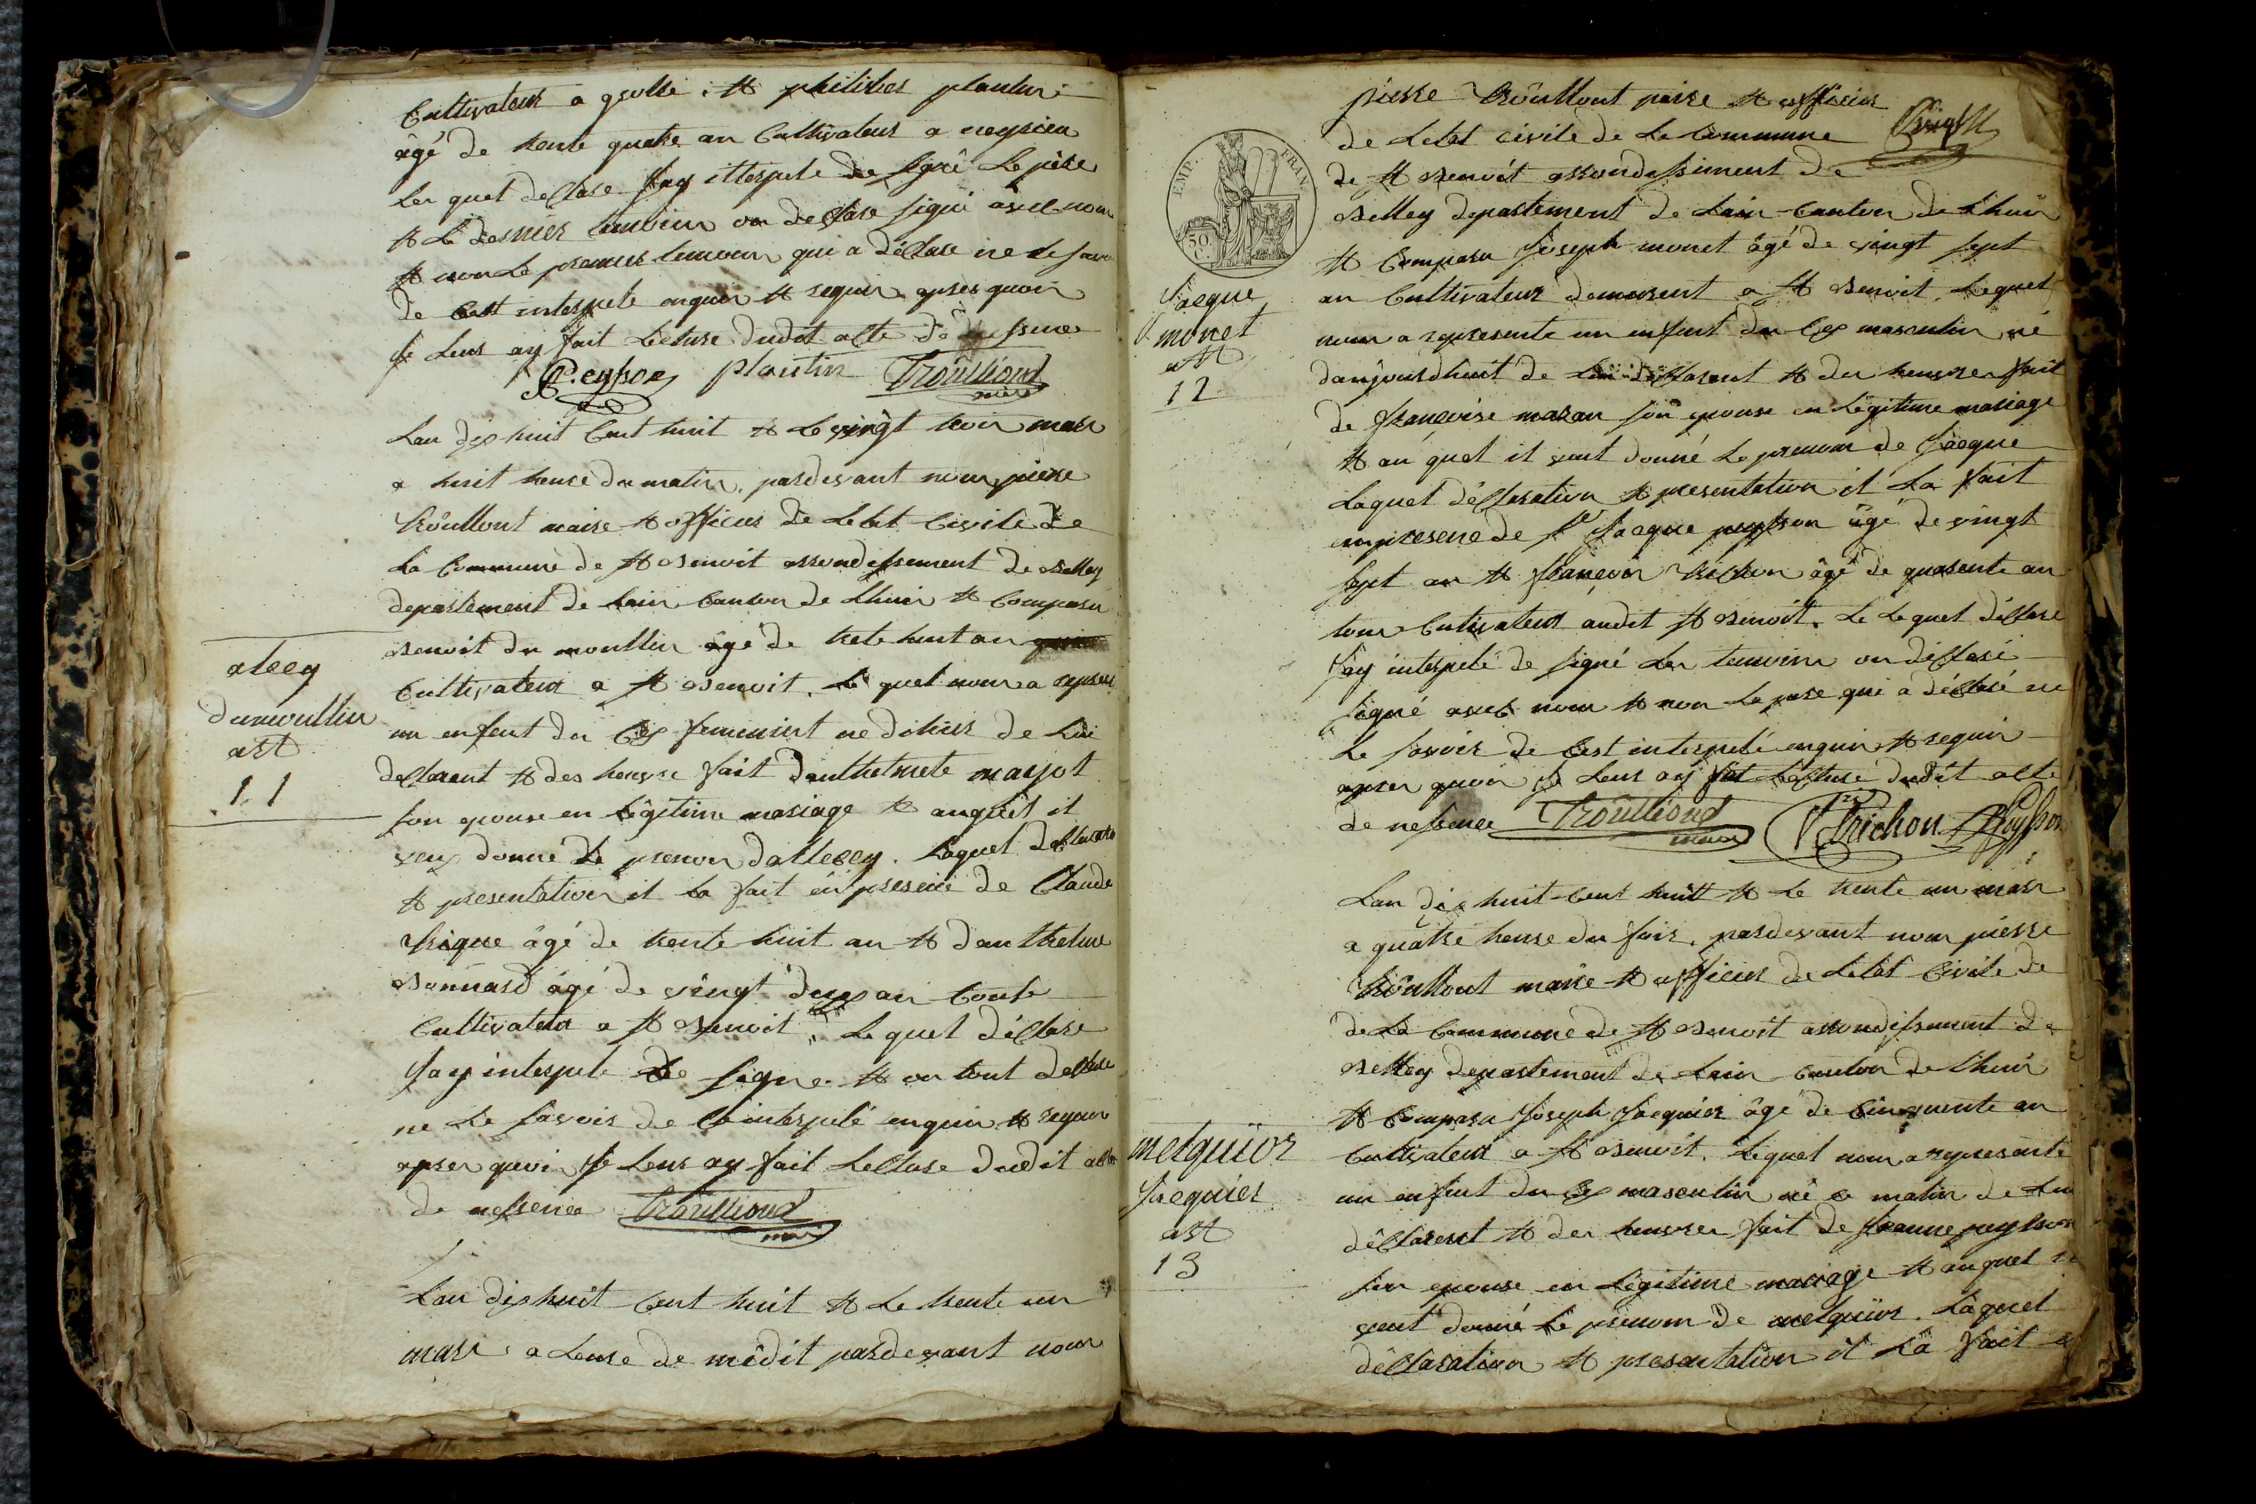 Cultivateur a grolle . et philiber plantin
âgé de trente quatre an Cultivateur a neyrieu
les quel declare jay itterpele de signé Le père
et Le dernier temoin on declare signé avec nous
et non Le premier temoin qui a déclare ne Le savoir
de Cest interpele enquis et requis apres quoi
je Leur ay fait Lecture dudit acte de
Peysson plantin Trouilloud
maire
Lan dix huit Cent huit et Le vingt trois mars
a huit heure du matin, pardevant nous piere
trôulloud maire et officier de Letet Civile de
La Commune de st Benoit arrondissement de Belley
departement de Lain Canton de Lhuis et Comparu
Benoit du moullin âgé de trete huit an
Cultivateur a st Benoit, Le quel nous a repres
un enfent du Cex femenient ne dihier de Lui
declarent et des heuvre fait danthelmete marjot
son epouse en Légitime mariage et auquel il
veux donné Le prenon dallecey. Laquel declarati
et presentation il La fait en presence de Claude
trique âgé de trente huit an et danthelme
Bonnard âgé de vingt deux an toute
Cultivateur a st Benoit, Le quel déclare
jay interpele de signe et on tout declare
ne Le savoir de Ce interpelé enquis et requis
apres quoi je Leur ay fait Lecture dudit acte
de nessence Trouilloud
maire
alecey
dumoullin
ast
11
Lan dix huit Cent huit et Le trente un
mars a Leure de midit pardevant nous
pierre trôulloud maire et officier
de Letet civile de Le Commune
de st Benoit arrondissiment de
Belley departement de Lain Canton de Lhuis
et Comparu Joseph monet âgé de vingt sept
an Cultivateur demeurent a st Benoit, Lequel
nous a represente un enfent du Cex masculin né
daujourdhuit de Lui déclarent et des heuvres fait
de françoise maran son epouse en Légitime mariage
et au quel il veut donné Le prenom de Jacque
Laquel déclaration et presentation il La fait
en presence de Sr Jacque peysson âgé de vingt
sept an et françois trichon âgé de quarente an
tous Cultivateur audit st Benoit, Le Lequel déclare
jay interpelé de signé Les temoins on déclaré
signé avec nous et non Le pere qui a déclaré ne
Le savoir de Cest interpelé enquis et requis
apres quoi je Leur ay fait Lecture dudit acte
de nessence Trouilloud Trichon Peysson
maire
EMP. FRAN.
50 C.
Jacque
monet
ast
12
Lan dix huit Cent huit et Le trente un mars
a quatre heure du soir, pardevant nous pierre
trôulloud maire et officier de Letet Civile de
de La Commune de st Benoit arrondissement de
Belley departement de Lain Canton de Lhuis
et Comparu Joseph Jacquier âgé de Cinquente an
Cultivateur a st Benoit, Lequel nous a represente
un enfent du Cex masculin né ce matin de Lui
déclarent et des heuvres fait de Jeanne peysson
son epouse en Légitime mariage et auquel il
veut donné Le prenom de melquior. Laquel
déclaration et presentation il La fait
melquior
Jacquier
ast
13